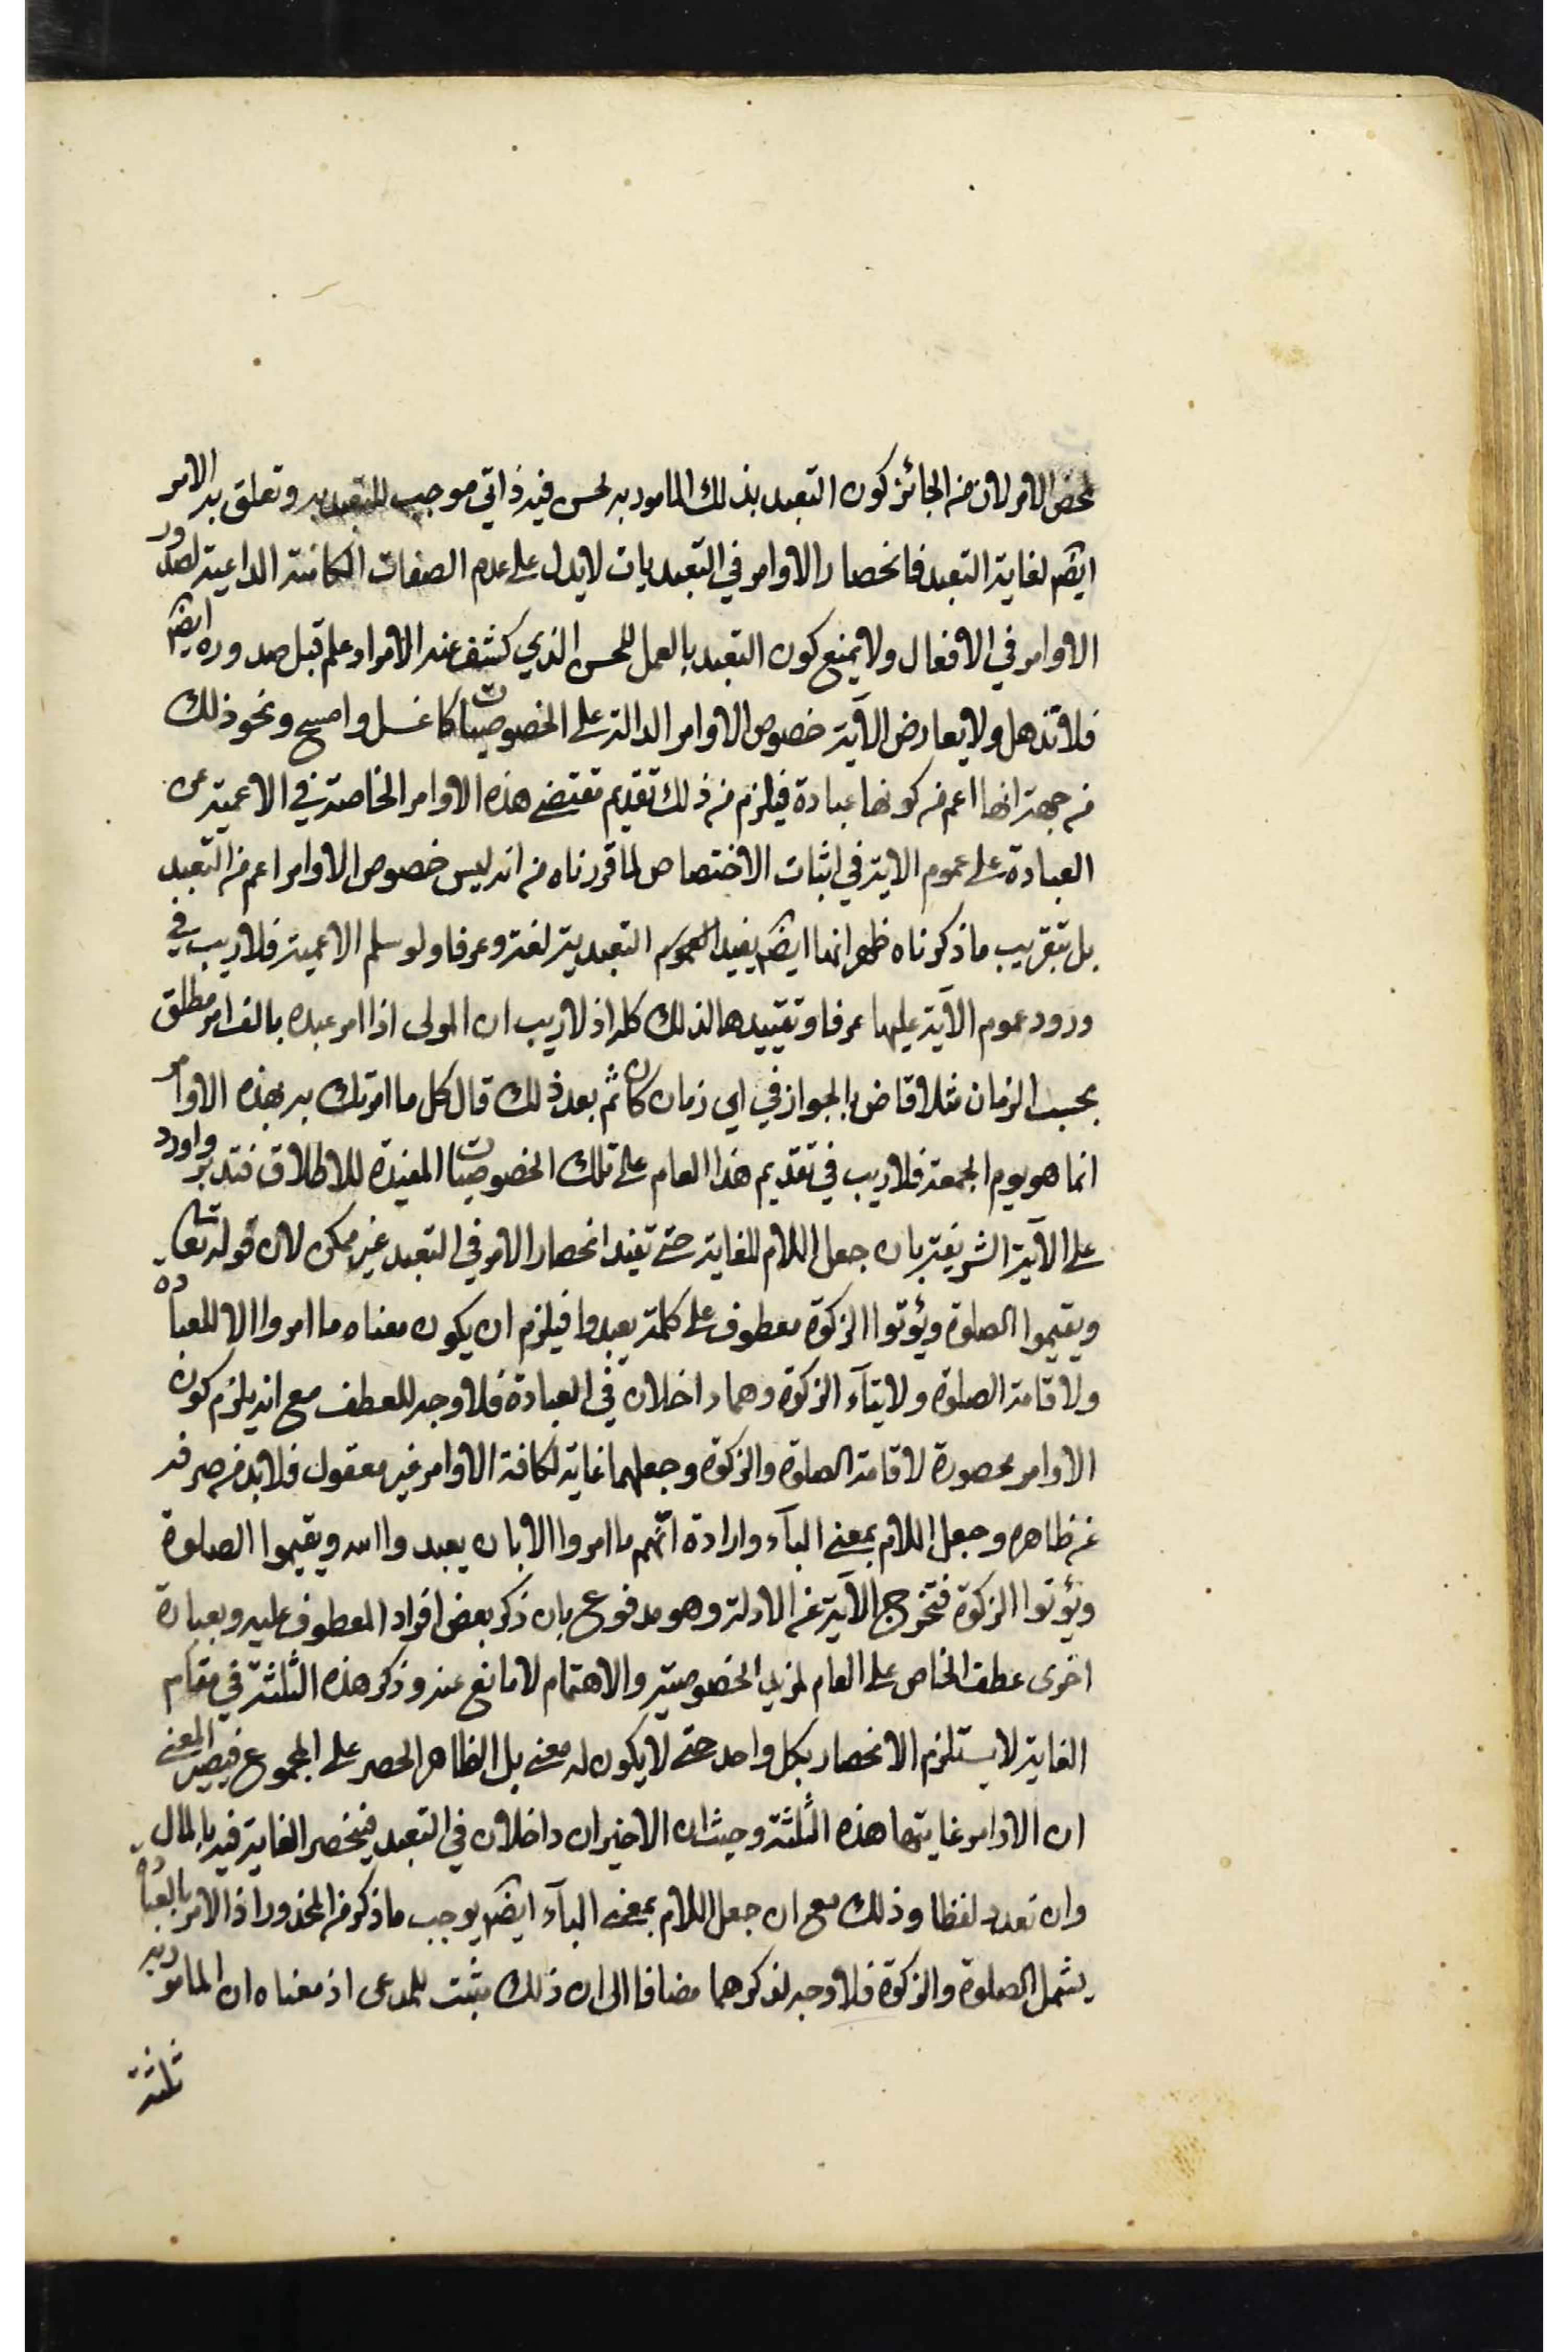 لمحض الامر لان من الجائز كون التعبد بذلك المامور به لحسن فيه ذاتي موجب للتعبد به وتعلق به الامر
ايضا لغاية التعبد فانحصار الاوامر في التعبديات لا يدل على عدم الصفات الكامنة الداعية لصدور
الاوامر في الافعال ولا يمنع كون التعبد بالعمل للحسن الذي كشف عنه الامر او علم قبل صدوره ايضا
فلا تذهل ولا يعارض الآية خصوص الاوامر الدالة على الخصوصيات كاغسل وامسح ونحو ذلك
من جهة انها اعم من كونها عبادة فيلزم من ذلك تقديم مقتضى هذه الاوامر الخاصة في الاعمية عن
العبادة على عموم الاية في اثبات الاختصاص لما قررناه من انه ليس خصوص الاوامر اعم من التعبد
بل بتقريب ما ذكرناه ظهر انها ايضا يفيد العموم التعبدية لغة وعرفا ولو سلم الاعمية فلا ريب في
ورود عموم الآية عليها عرفا وتقييدها لذلك كله اذ لا ريب ان المولى اذا امر عبده بالف امر مطلق
بحسب الزمان مثلا قاض بالجواز في اي زمان كان ثم بعد ذلك قال كل ما امرتك به بهذه الاوامر
انما هو يوم الجمعة فلا ريب في تقديم هذا العام على تلك الخصوصيات المفيدة للاطلاق فتدبر واورد
على الآية الشريفة بان جعل اللام للغاية حتى تفيد انحصار الامر في التعبد غير ممكن لان قوله تعالى
ويقيموا الصلوة ويؤتوا الزكوة معطوف على كلمة يعبدوا فيلزم ان يكون معناه ما امروا الا للعبادة
ولاقامة الصلوة ولايتآء الزكوة وهما داخلان في العبادة فلا وجه للعطف مع انه يلزم كون
الاوامر محصورة لاقامة الصلوة والزكوة وجعلهما غاية لكافة الاوامر غير معقول فلا بد من صرفه
عن ظاهره وجعل اللام بمعنى البآء وارادة انهم ما امروا الا بان يعبدوا الله ويقيموا الصلوة
ويؤتوا الزكوة فتخرج الآية عن الادلة وهو مدفوع بان ذكر بعض افراد المعطوف عليه وبعبارة
اخرى عطف الخاص على العام لمزيد الخصوصية والاهتمام لا مانع عنه وذكر هذه الثلثة في مقام
الغاية لا يستلزم الانحصار بكل واحد حتى لا يكون له معنى بل الظاهر الحصر على المجموع فيصير المعنى
ان الاوامر غايتها هذه الثلثة وحيث ان الاخيران داخلان في التعبد فينحصر الغاية فيه بالمال
وان تعدد لفظا وذلك مع ان جعل اللام بمعنى البآء ايضا يوجب ما ذكر من المحذور اذ الامر بالعبادة
يشمل الصلوة والزكوة فلا وجه لذكرهما مضافا الى ان ذلك مثبت للمدعى اذ معناه ان المامور به
ثلثة